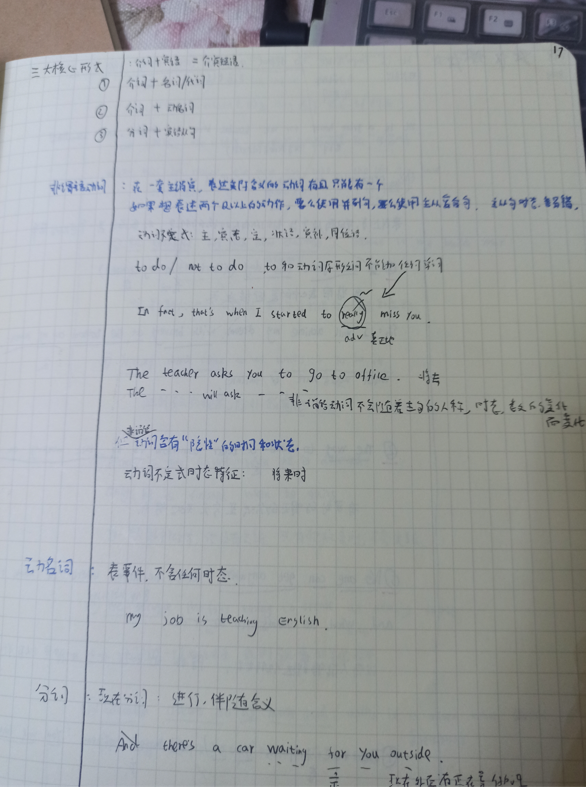 17
三大核心形式 : 介词+宾语 = 介宾短语
① 介词 + 名词/代词
② 介词 + 动名词
③ 介词 + 宾语从句
非谓语动词 : 在一套主谓宾, 表达实际含义的动词有且只能有一个
如果想表达两个及以上的动作, 要么使用并列句, 要么使用主从复合句.
动词不定式: 主, 宾, 表, 定, 状语, 宾补, 同位语.
to do / not to do to和动词原形之间不能加任何单词
In fact, that's when I started to really miss you.
adv
The teacher asks you to go to office.
The - - - will ask - - - 非谓语动词不会随着主句的人称, 时态,
动词含有"隐性"的时间和状态.
动词不定式时态特征: 将来时
动名词 : 表事件, 不含任何时态.
my job is teaching English.
分词 : 现在分词: 进行, 伴随含义
And there's a car waiting for you outside.